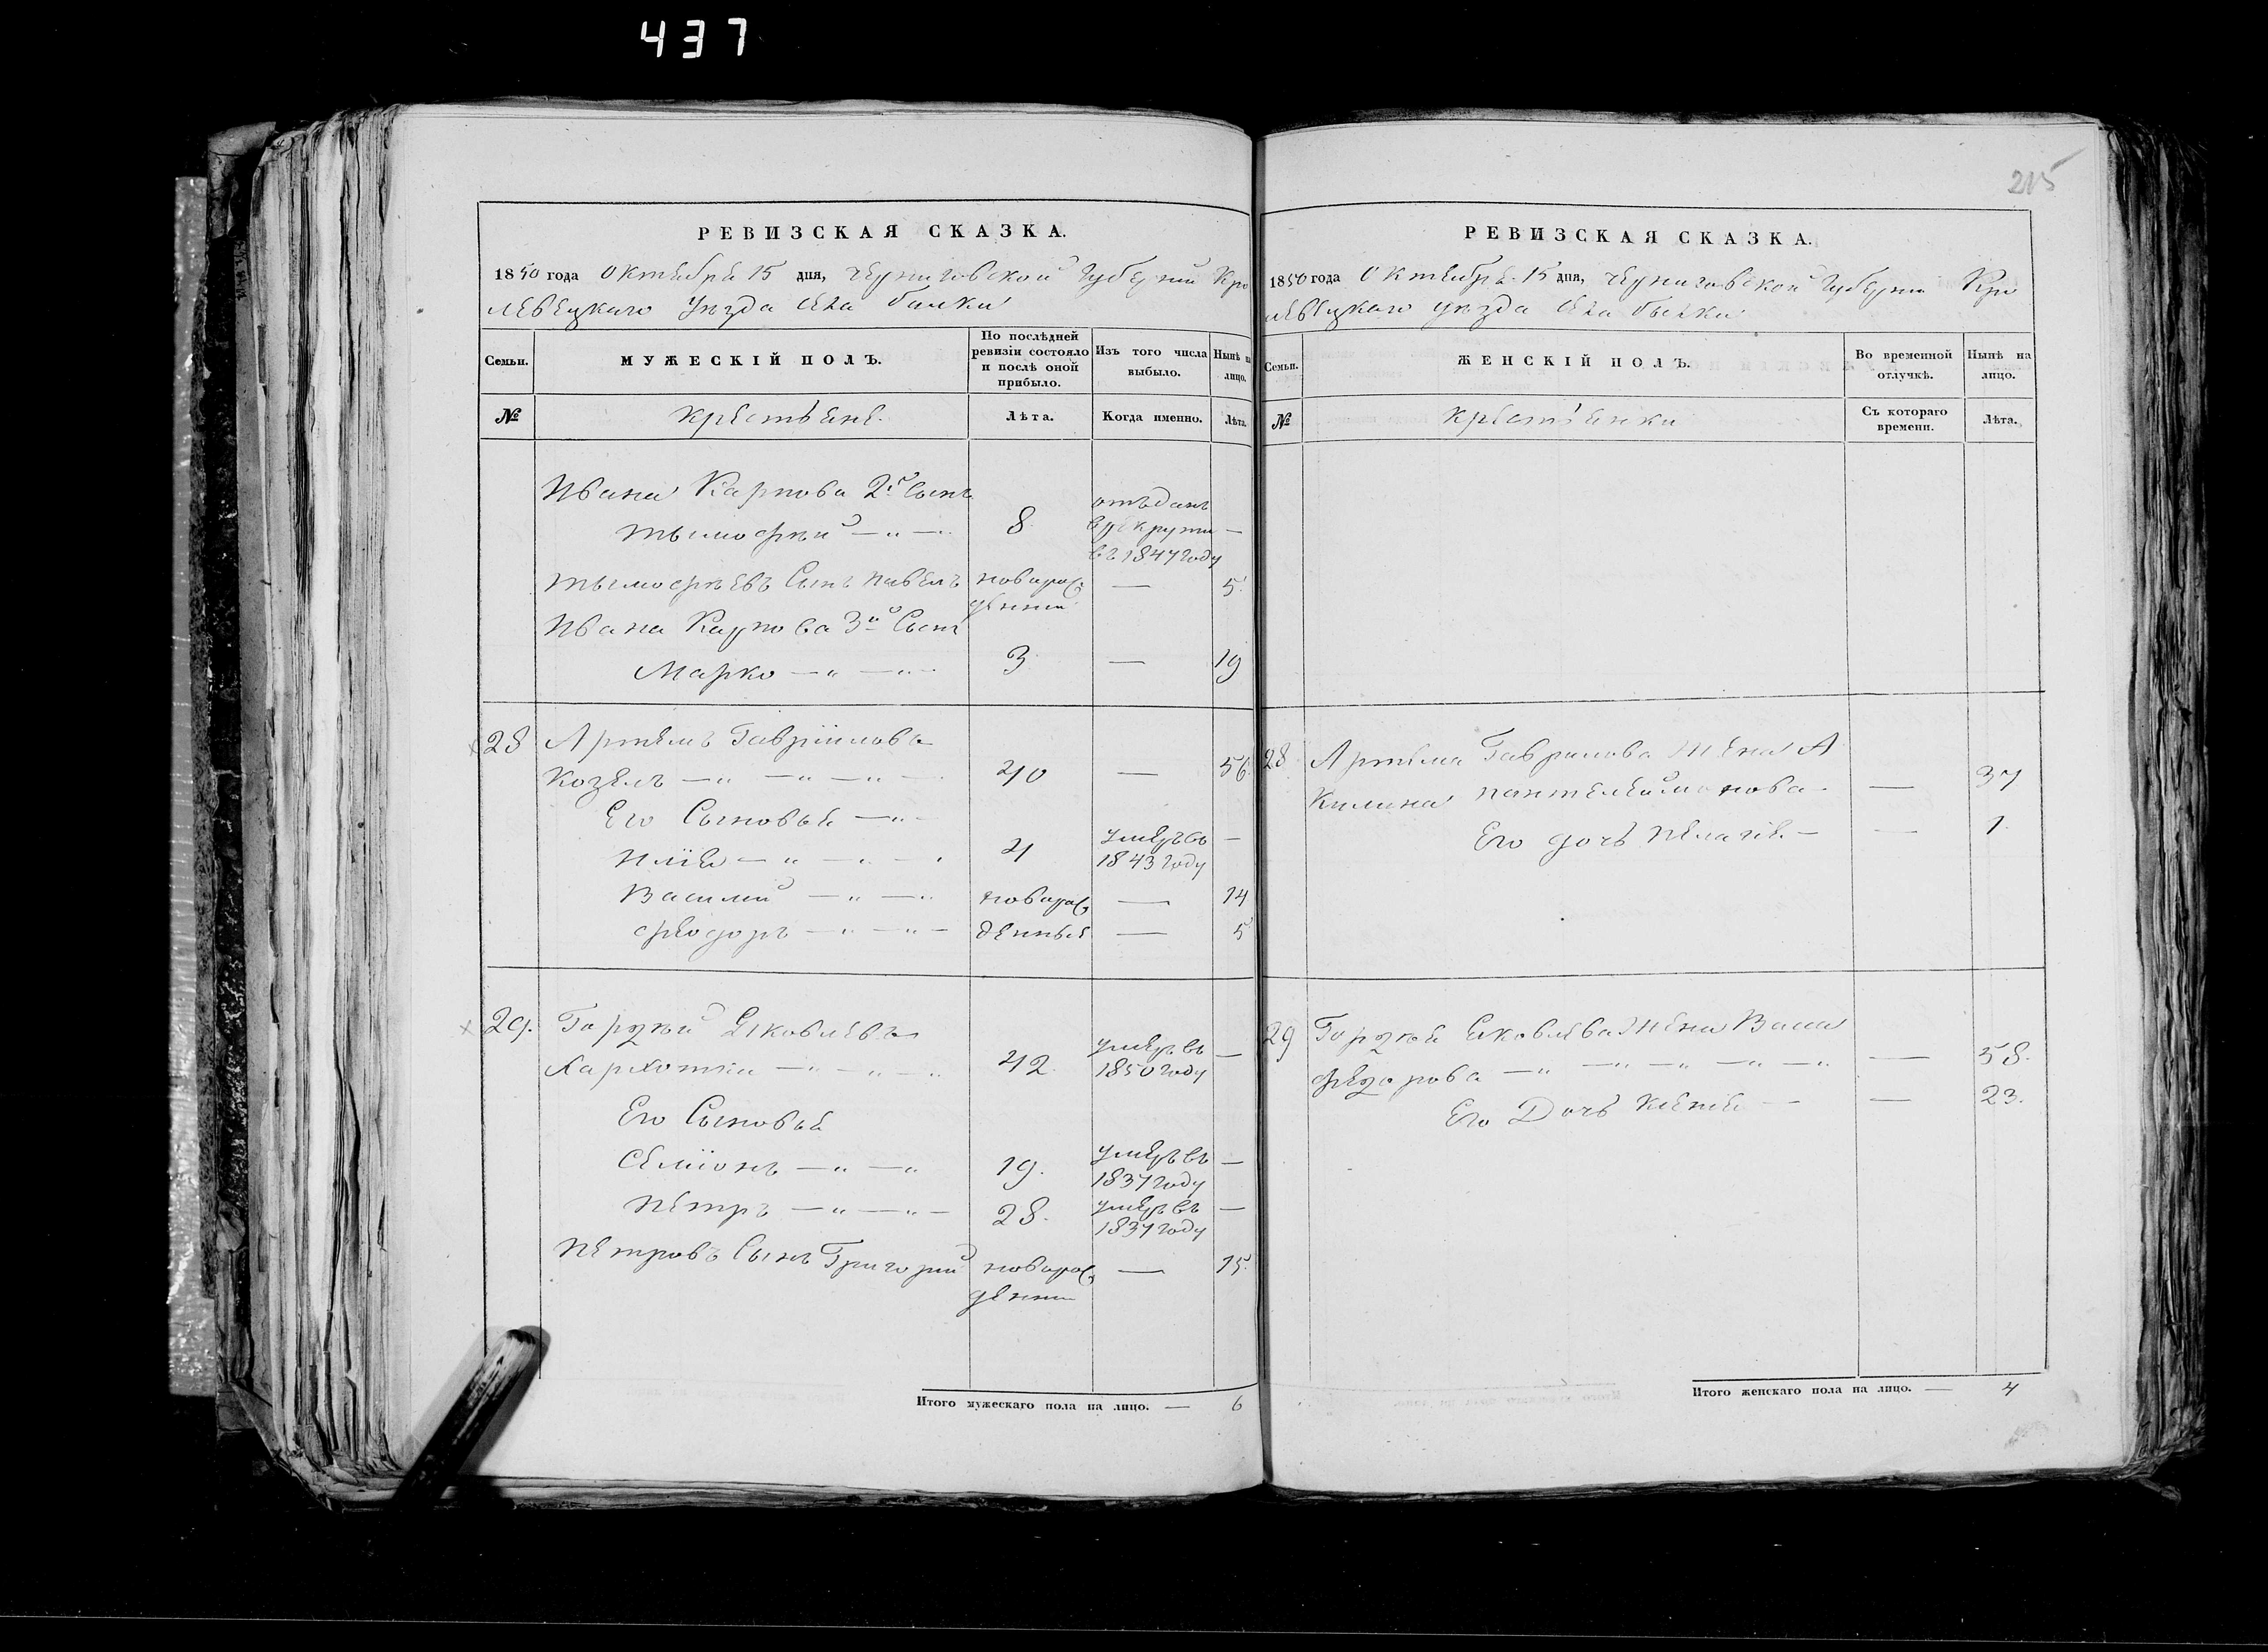 437
215
РЕВИЗСКАЯ СКАЗКА.
1850 года Октября 15 дня, Черниговской Губернии Кро
левецкаго Уезда Села
№ Семьи.
МУЖЕСКІЙ ПОЛЪ.
По послѣдней ревизіи состояло и послѣ оной прибыло.
Изъ того числа выбыло.
Нынѣ на лицо.
№ Крестьяне. Лѣта. Когда именно. Лѣта.
Ивана Карпова 2й Сынъ
Тымофѣй — „ — 8 отъдан в рекруты в 1847 году —
Тымофѣевъ Сынъ Павелъ новорожденный — 5
Ивана Карпова 3й Сынъ
Марко — „ — „ — 3 — 19
28 Артемъ Гавриіловъ
Козелъ — „ — „ — „ — 40 — 56
Его Сыновья — „ —
Илія — „ — „ — 4 умеръ въ 1843 году —
Василий — „ — „ новорож — 14
Феодоръ — „ — „ — денныя — 5
29. Гордѣй Яковлевъ
— „ — „ — „ 42. умеръ въ 1850 году —
Его Сыновья
Семіонъ — „ — „ 19. умеръ въ 1837 году —
Петръ — „ — „ — 28. умеръ въ 1837 году —
Петровъ Сынъ Григорий новорожденни — 15.
Итого мужескаго пола на лицо. — 6
РЕВИЗСКАЯ СКАЗКА.
1850 года Октября 15 дня, Черниговской Губернии Кро
левецкаго Уезда Села
Семьи.
ЖЕНСКІЙ ПОЛЪ.
Во временной отлучкѣ.
Нынѣ на лицо.
№ Крестьянки Съ котораго времени. Лѣта.
28 Артема Гаврилова Жена А
килина Пантелеймонова — — 37
Его дочь Пелагія — — 1.
29 Гордѣя Яковлева Жена Васа
Федорова — „ — „ — „ — „ — „ — 58.
Его Дочь Ксенія — — 23.
Итого женскаго пола на лицо. — 4